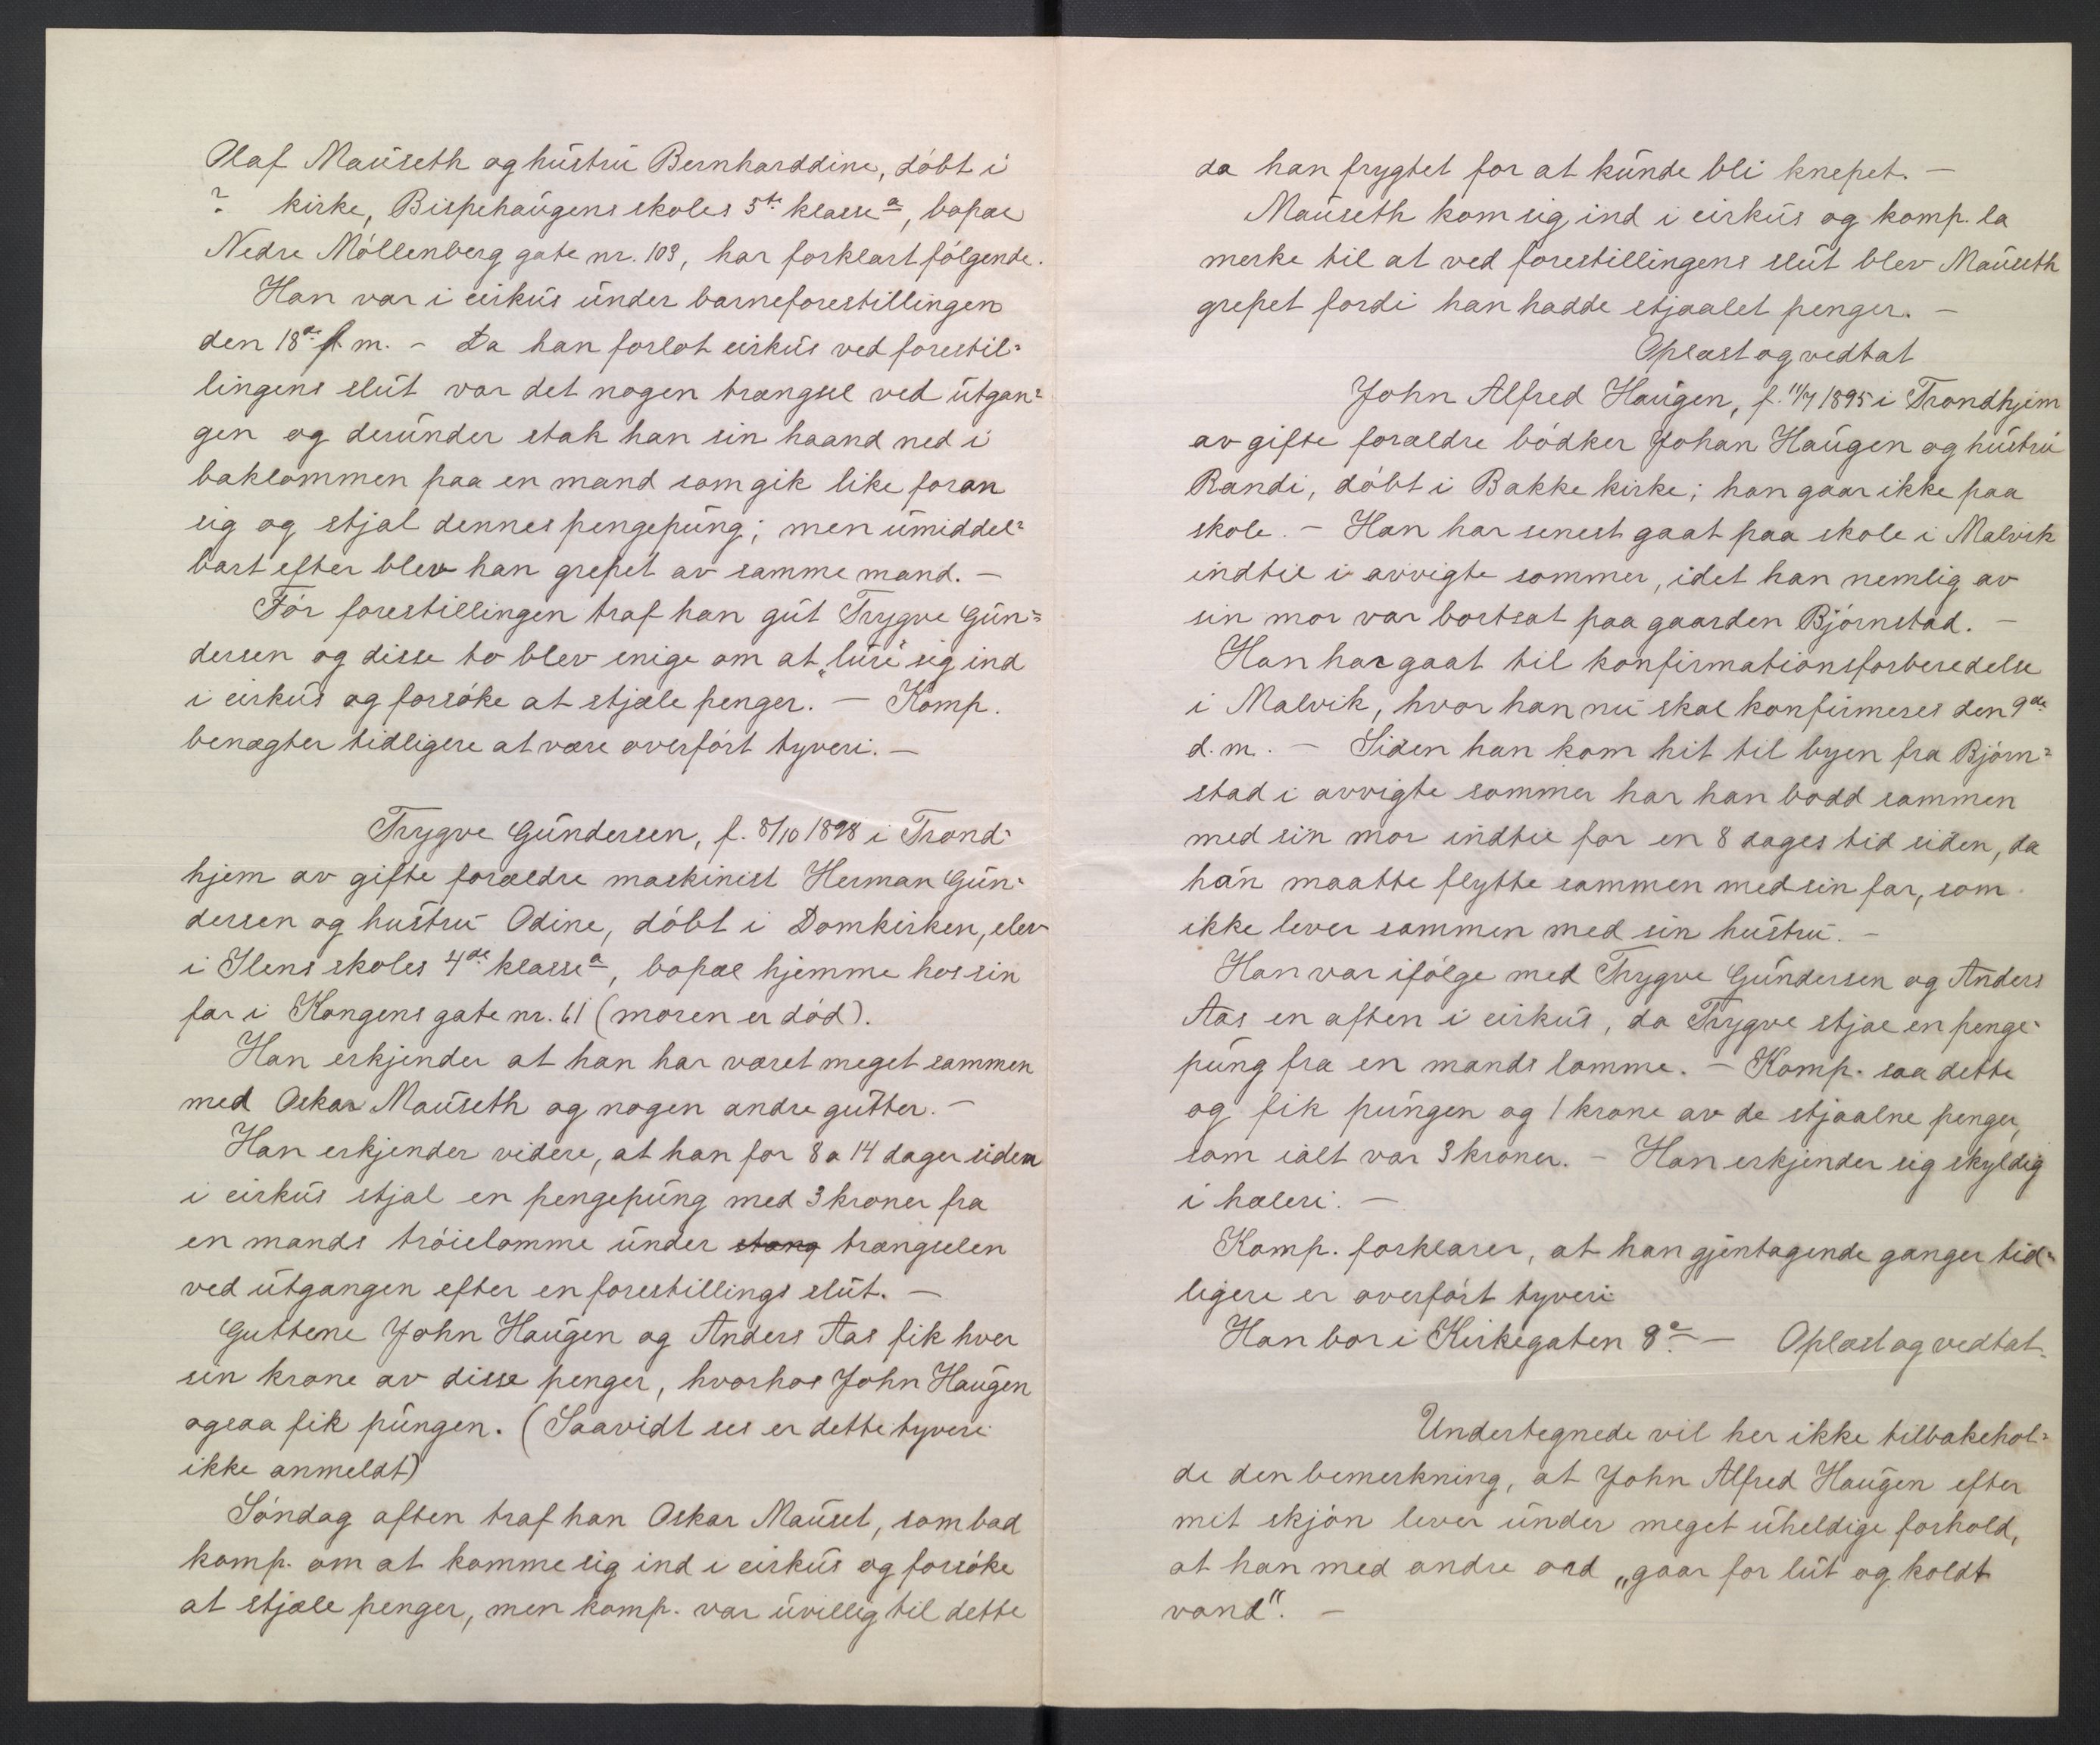 Olaf Mauseth og hustru Bernharddine, döbt i
? kirke, Bispehaugens skoles 5te klasse a, bopæl
Nedre Möllenberg gate nr. 103, har forklart fölgende.
Han var i cirkus under barneforestillingen
den 18de f. m. – Da han forlot cirkus ved forestil=
lingens slut var det nogen trængsel ved utgan=
gen og derunder stak han sin haand ned i
baklommen paa en mand som gik like foran
sig og stjal dennes pengepung; men umiddel=
bart efter blev han grepet av samme mand. –
Før forestillingen traf han gut Trygve Gun=
dersen og disse to blev enige om at „lure" sig ind
i cirkus og forsöke at stjæle penger. – Komp.
benægter tidligere at være overfört tyveri. –
Trygve Gundersen, f. 8/10 1898 i Trond=
hjem av gifte forældre maskinist Herman Gun=
dersen og hustru Odine, döbt i Domkirken, elev
i Ilens skoles 4de klasse a, bopæl hjemme hos sin
far i Kongens gate nr. 61 (moren er död).
Han erkjender at han har været meget sammen
med Oskar Mauseth og nogen andre gutter. –
Han erkjender videre, at han for 8 a 14 dager siden
i cirkus stjal en pengepung med 3 kroner fra
en mands tröielomme under stang trængselen
ved utgangen efter en forestillings slut. –
Guttene John Haugen og Anders Aas fik hver
sin krone av disse penger, hvorhos John Haugen
ogsaa fik pungen. (Saavidt ses er dette tyveri
ikke anmeldt)
Söndag aften traf han Oskar Mauset, som bad
komp. om at komme sig ind i cirkus og forsöke
at stjæle penger, men komp. var uvillig til dette
da han frygtet for at kunde bli knepet. –
Mauseth kom sig ind i cirkus og komp. la
merke til at ved forestillingens slut blev Mauseth
grepet fordi han hadde stjaalet penger. –
Oplæst og vedtat
John Alfred Haugen, f. 11/7 1895 i Trondhjem
av gifte forældre bödker Johan Haugen og hustru
Randi, döbt i Bakke kirke; han gaar ikke paa
skole. – Han har senest gaat paa skole i Malvik
indtil i avvigte sommer, idet han nemlig av
sin mor var bortsat paa gaarden Björnstad. –
Han har gaat til konfirmationsforberedelse
i Malvik, hvor han nu skal konfirmeres den 9de
d. m. – Siden han kom hit til byen fra Björn=
stad i avvigte sommer har han bodd sammen
med sin mor indtil for en 8 dages tid siden, da
han maatte flytte sammen med sin far, som
ikke lever sammen med sin hustru. –
Han var ifölge med Trygve Gundersen og Anders
Aas en aften i cirkus, da Trygve stjal en penge=
pung fra en mands lomme. – Komp. saa dette
og fik pungen og 1 krone av de stjaalne penger,
som ialt var 3 kroner. – Han erkjender sig skyldig
i hæleri. –
Komp. forklarer, at han gjentagende ganger tid=
ligere er overfört tyveri.
Han bor i Kirkegaten 8 – Oplæst og vedtat.
Undertegnede vil her ikke tilbakehol=
de den bemerkning, at John Alfred Haugen efter
mit skjön lever under meget uheldige forhold,
at han med andre ord „gaar for lut og koldt
vand". –